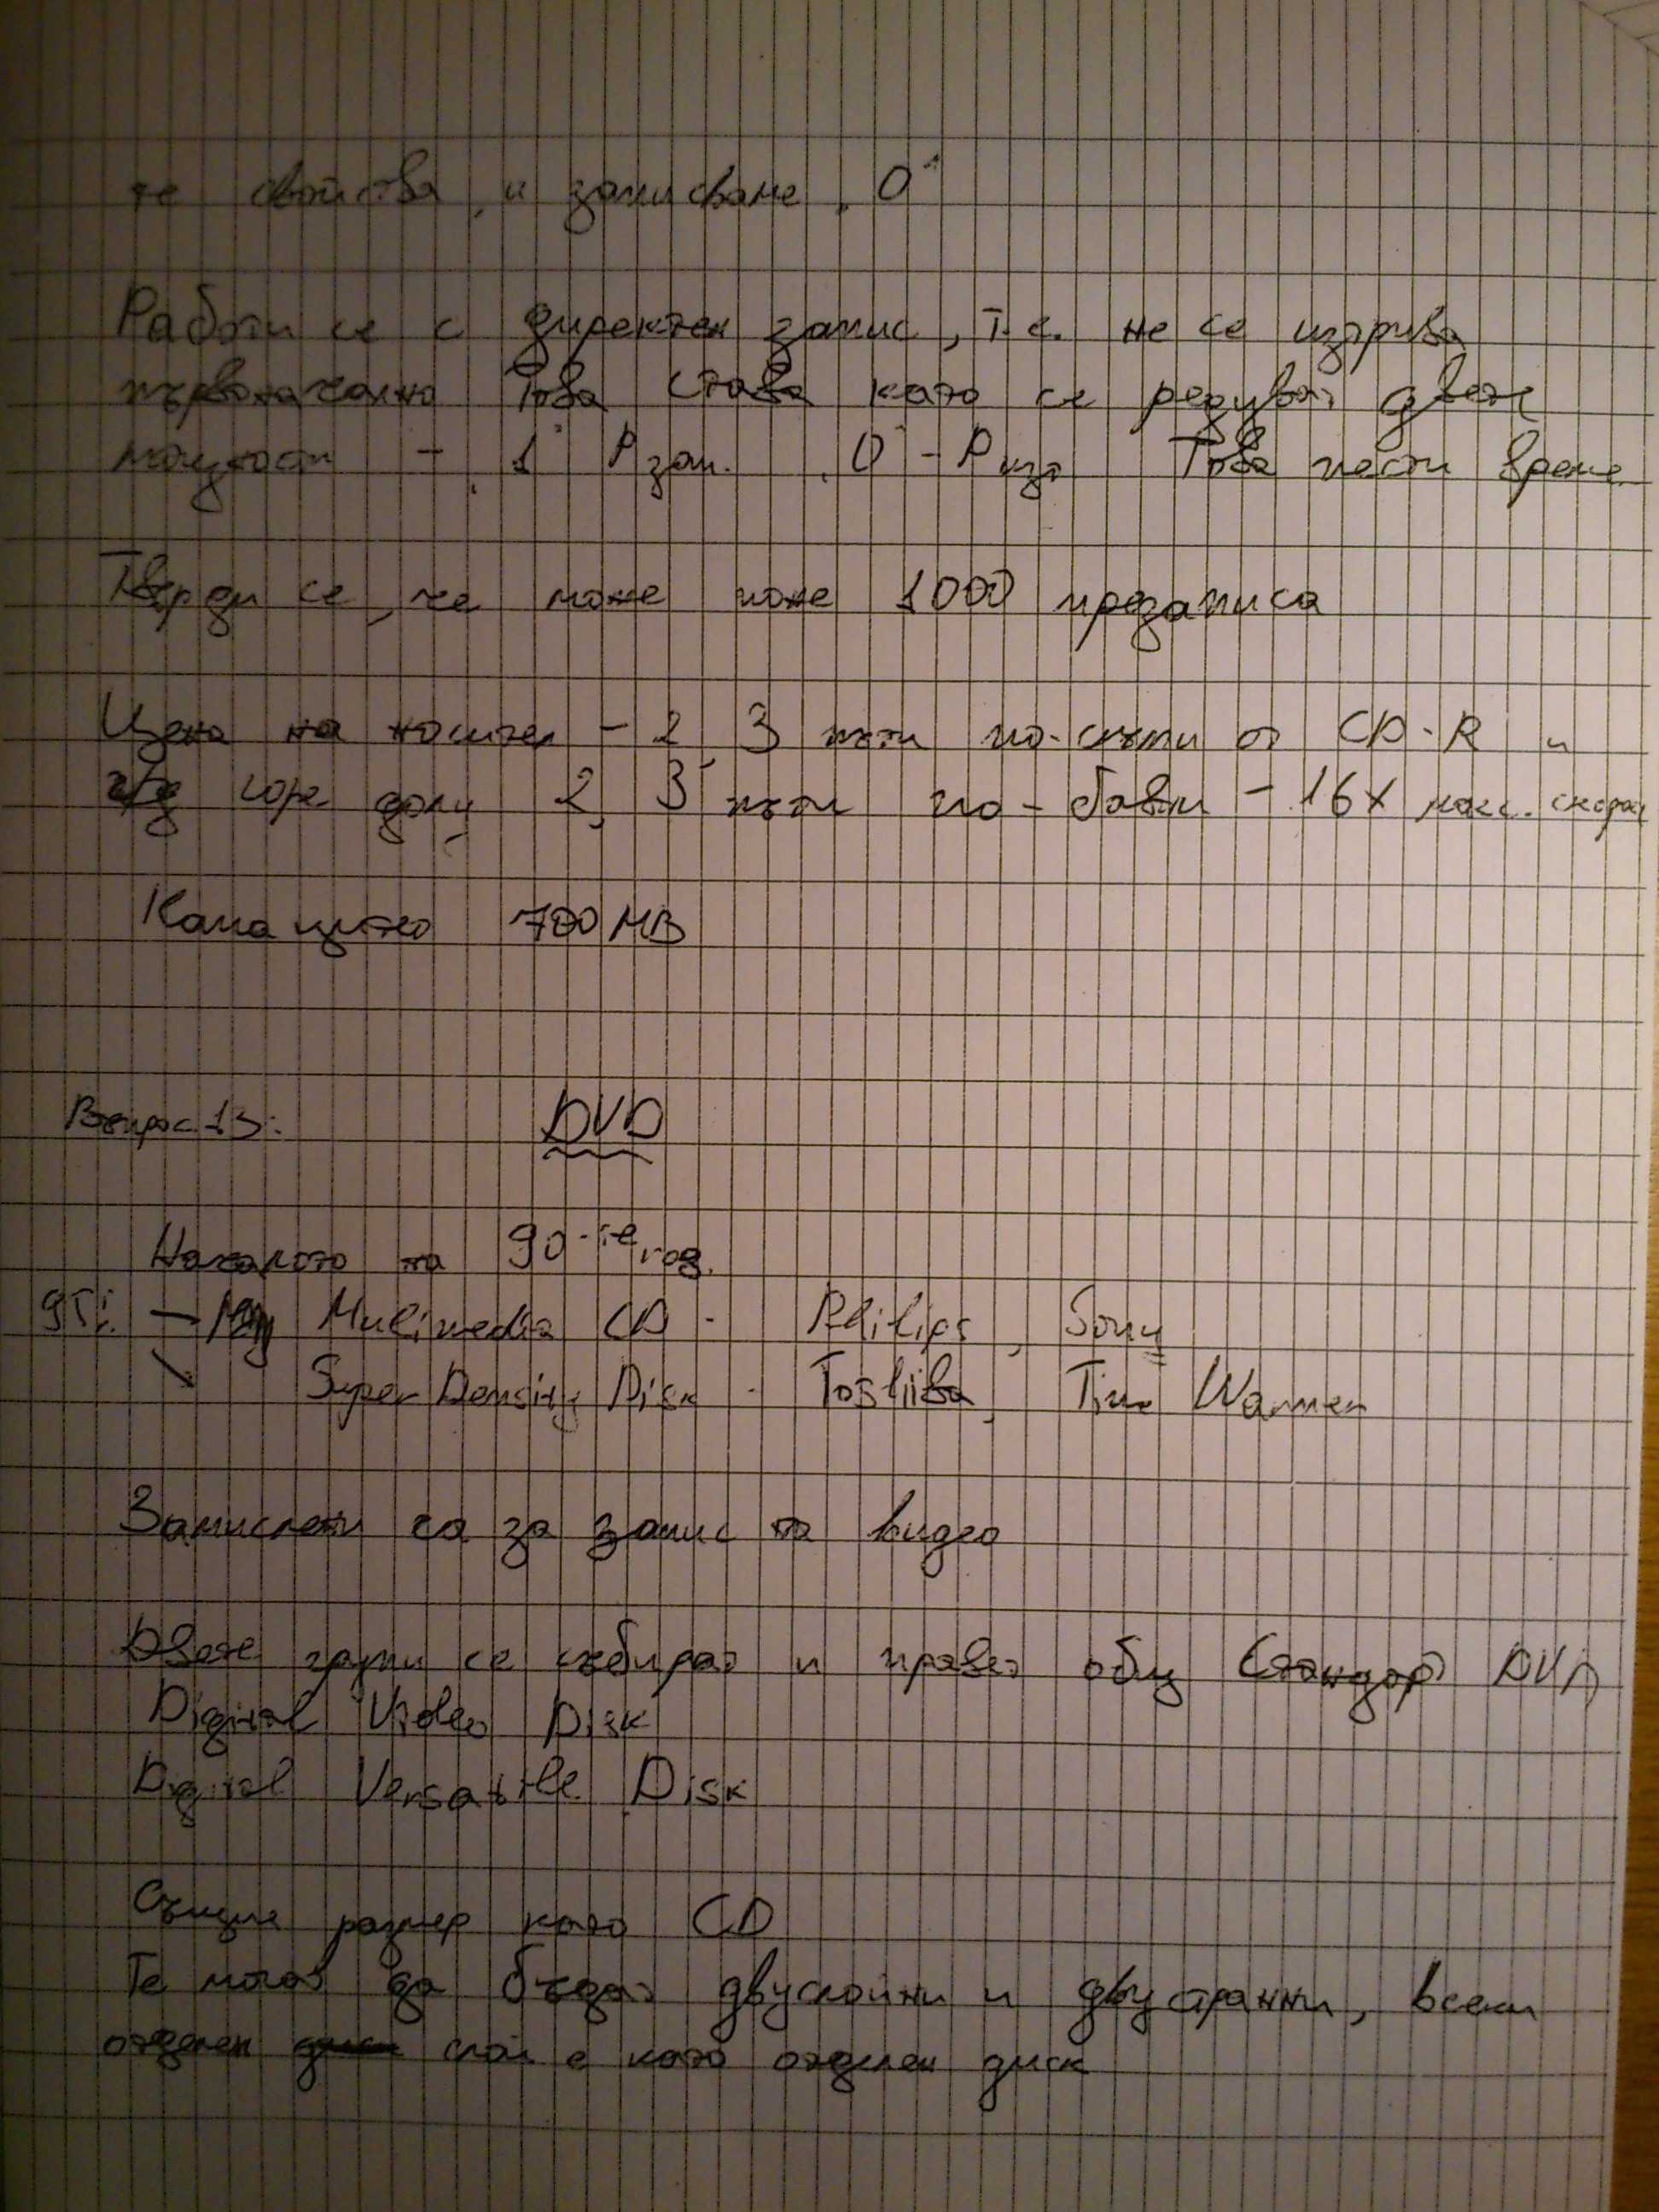 те свойства и записване „0“
Работи се с директен запис, т.е. не се изтрива
първоначално Това става като се редуват двете
мощности - „1“ Pзап. „0“ - Pизт Това пести време.
Твърди се, че може поне 1000 презаписа
Цена на носител - 2, 3 пъти по-скъпи от CD-R и
горе долу 2, 3 пъти по-бавни - 16x макс. скорост
Капацитет 700 MB
Въпрос 13: DVD
Началото на 90-те год.
95г. - Mulimedia CD - Philips, Sony
Super Density Disk - Toshiba, Time Warner
Замислени са за запис на видео
Двете групи се събират и правят общ стандарт DVD
Digital Video Disk
Digital Versatile Disk
Същия размер като CD
Те могат да бъдат двуслойни и двустранни, всеки
отделен слой е като отделен диск